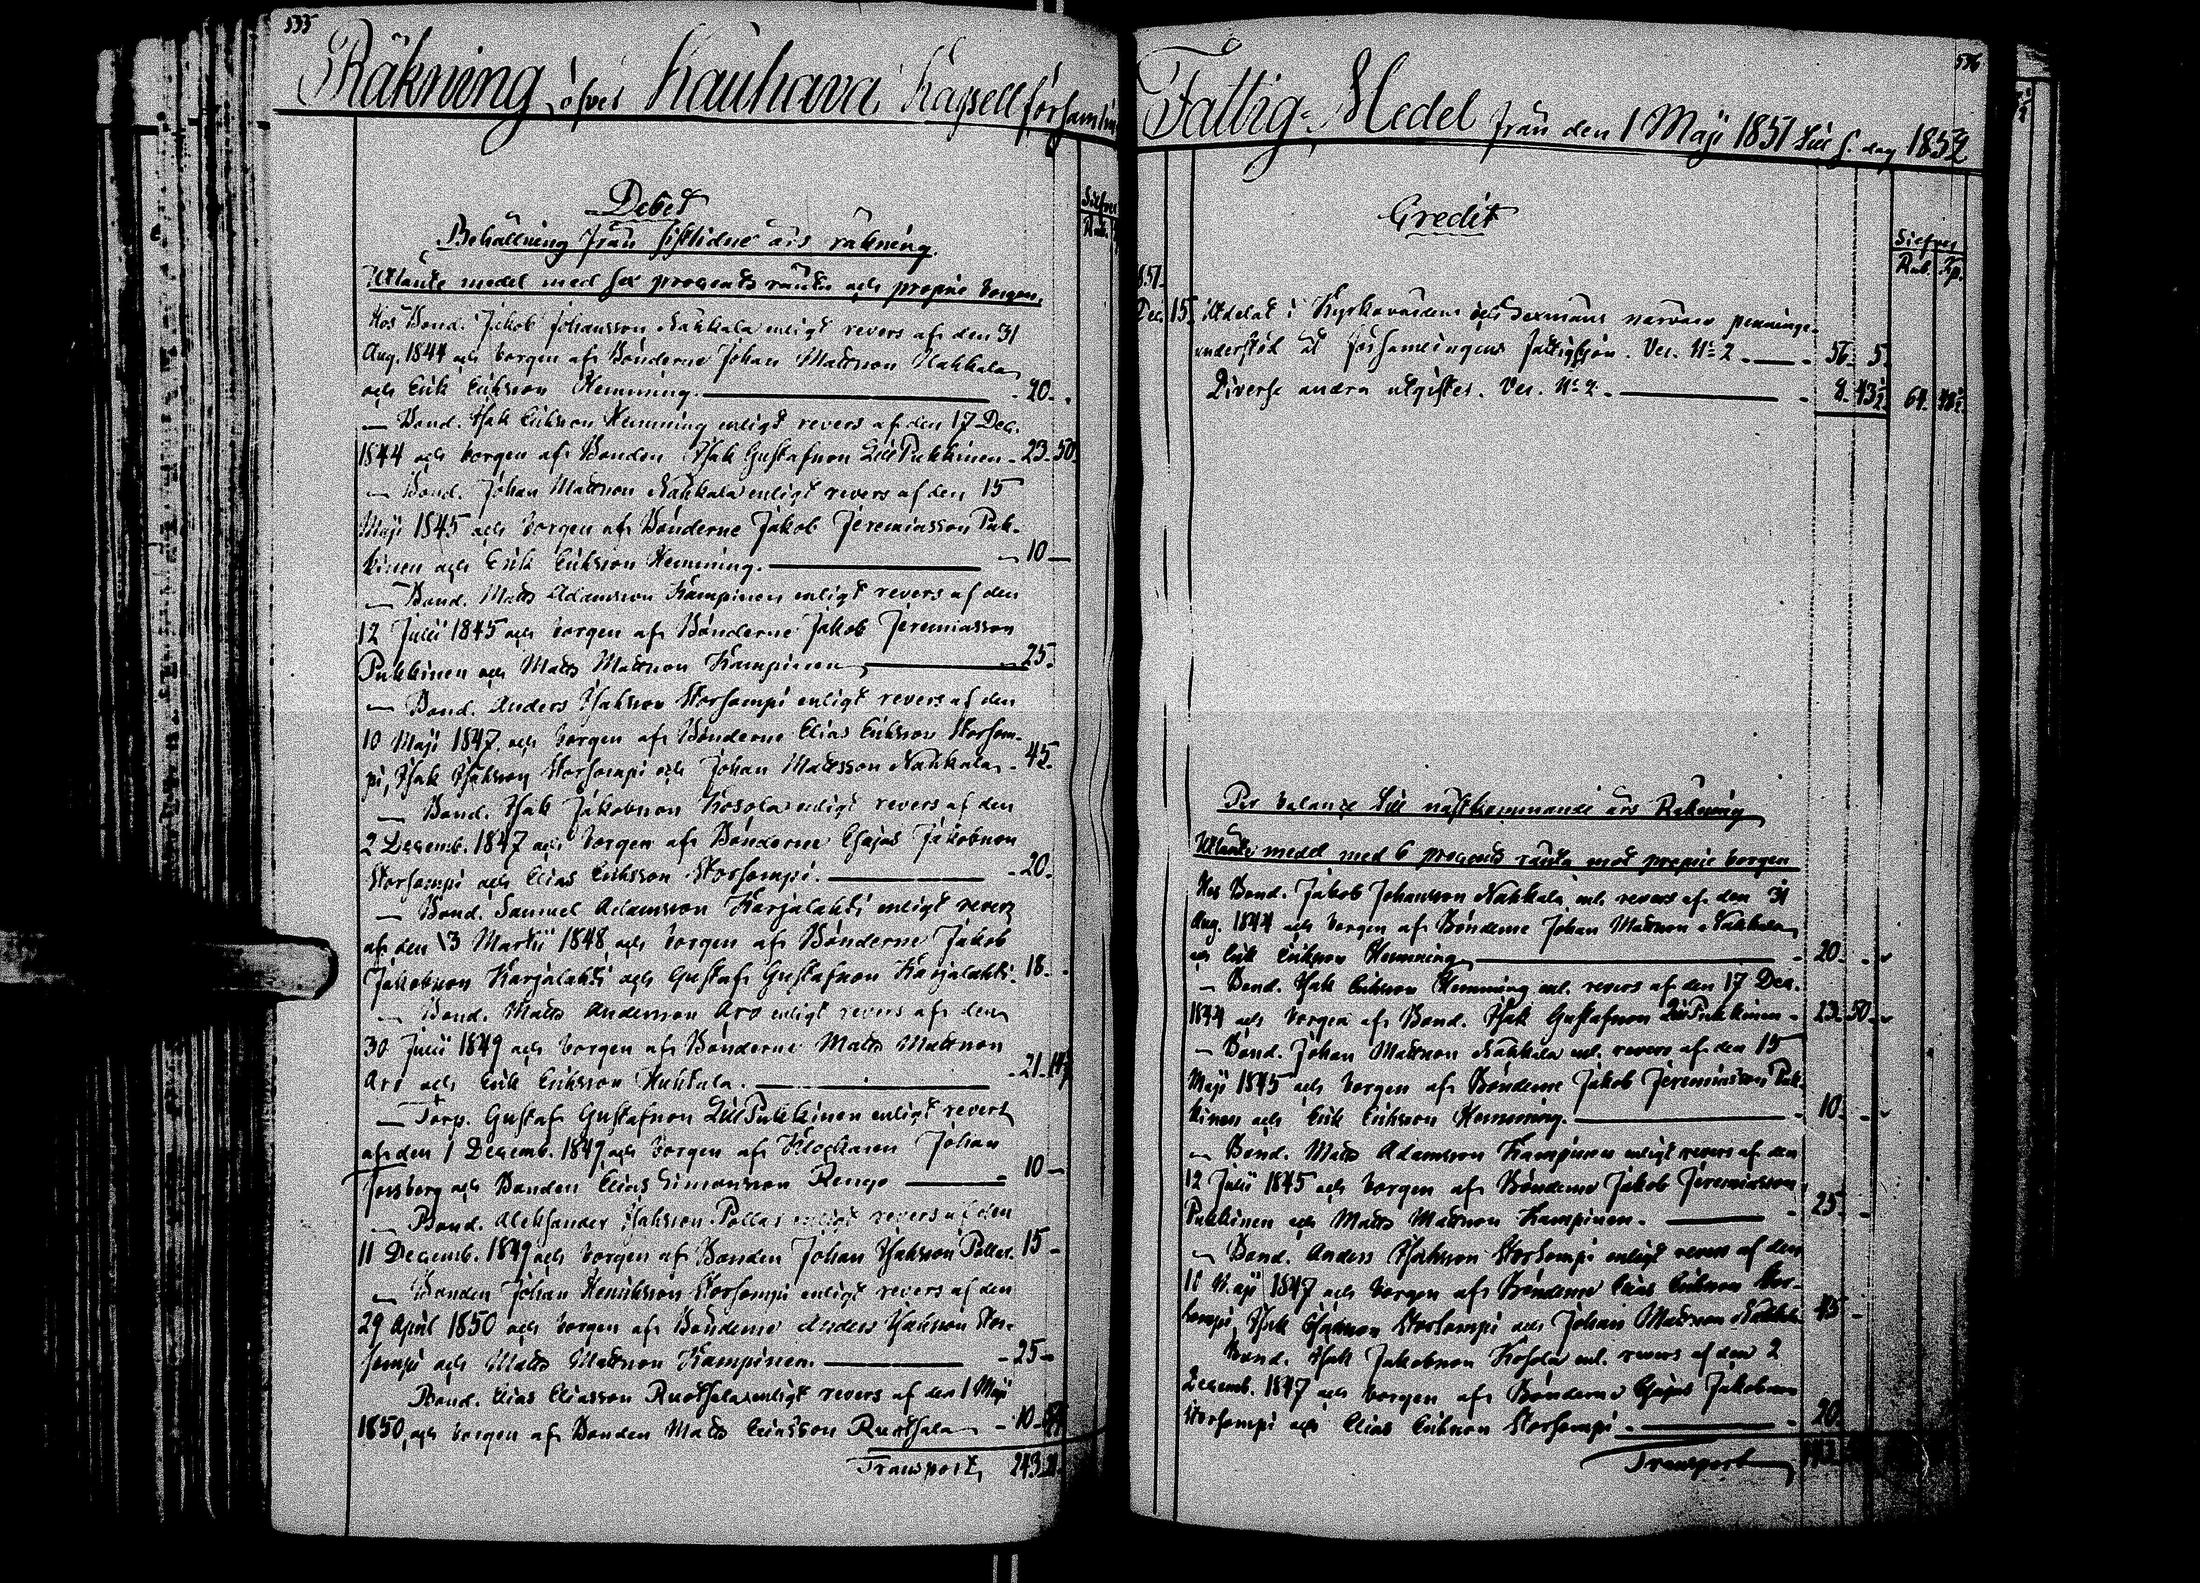 535
Räkning öfver Kauhava Kapellförsamlin
Debet
Silfver
Rub.
Behållning från sistlidne års räkning.
Utlante medel med sex procents ränta och proprie borgen,
Hos Bond. Jakob Johansson Nahkala enligt revers af den 31
Aug. 1844 och borgen af Bönderne Johan Mattsson Nahkala
och Erik Eriksson Hemming. 20.
— Bond. Isak Eriksson Hemming enligt revers af den 17 Dec.
1844 och borgen af Bonden Isak Gustafsson LillPukkinen - 23. 50
— Bond. Johan Mattsson Nahkala enligt revers af den 15
Maji 1845 och borgen af Bönderne Jakob Jeremiasson Puk-
kinen och Erik Eriksson Hemming. 10 —
— Bond. Matts Adamsson Kampinen enligt revers af den
12 Julii 1845 och borgen af Bönderne Jakob Jeremiasson
Pukkinen och Matts Mattsson Kampinen 25.
— Bond. Anders Isaksson Storsompi enligt revers af den
10 Maji 1847, och borgen af Bönderne Elias Eriksson Storsom-
pi, Isak Isaksson Storsompi och Johan Mattsson Nahkala - 45.
— Bond. Isak Jakobsson Kosola enligt revers af den
2 Decemb. 1847 och borgen af Bönderne Esajas Jakobsson
Storsompi och Elias Eriksson Storsompi. 20.
— Bond. Samuel Adamsson Karjalahti enligt revers
af den 13 Martii 1848 och borgen af Bönderne Jakob
Jakobsson Karjalahti och Gustaf Gustafsson Karjalahti. 18.
— Bond. Matts Andersson Aro enligt revers af den
30 Julii 1849 och borgen af Bönderne Matts Mattsson
Aro och Erik Eriksson Huhtala. 21.
— Torp. Gustaf Gustafsson LillPukkinen enligt revers
af den 1 Decemb. 1849 och borgen af Klockaren Johan
Forsberg och Bonden Elias Simonsson Rengo 10 —
— Bond. Aleksander Isaksson Pollas enligt revers af den
11 Decemb. 1849 och borgen af Bonden Johan Isaksson Pollas. 15 —
— Bonden Johan Henriksson Storsompi enligt revers af den
29 April 1850 och borgen af Bönderne Anders Isaksson Stor-
sompi och Matts Mattsson Kampinen. 25 —
Bond. Elias Eliasson Ruotsala enligt revers af den 1 Maji
1850, och borgen af Bonden Matts Eriksson Ruotsala - 10.
Transport, 243.
536
Fattig-Medel från den 1 Maji 1851 till s. dag 1852
Credit
Silfver
Rub. Kp.
1851.
Dec. 15. Utdelat i Kyrkovärdens och Sexmäns närvaro penninge-
understöd åt församlingens fattighjon. Ver. No 2. 56. 5.
Diverse andra utgifter. Ver. No 2. 8. 43½ 64. 48½
Per balance till nästkommande års Räkning
Utlante medel med 6 procents ränta mot proprie borgen
Hos Bond. Jakob Johansson Nahkala enl. revers af den 31
Aug. 1844 och borgen af Bönderne Johan Mattsson Nahkala
och Erik Eriksson Hemming, 20.
— Bond. Isak Eriksson Hemming enl. revers af den 17 Dec.
1844 och borgen af Bond. Isak Gustafsson LillPukkinen - 23. 50.
— Bond. Johan Mattsson Nahkala enl. revers af den 15
Maji 1845 och borgen af Bönderne Jakob Jeremiasson Puk-
kinen och Erik Eriksson Hemming. 10.
— Bond. Matts Adamsson Kampinen enligt revers af den
12 Julii 1845 och borgen af Bönderne Jakob Jeremiasson
Pukkinen och Matts Mattsson Kampinen. 25.
— Bond. Anders Isaksson Storsompi enligt revers af den
10 Maji 1847 och borgen af Bönderne Elias Eriksson Stor-
sompi, Isak Isaksson Storsompi och Johan Mattsson Nahkala 45 —
Bond. Isak Jakobsson Kosola enl. revers af den 2
Decemb. 1847 och borgen af Bönderne Esajas Jakobsson
Storsompi och Elias Eriksson Storsompi. 20.
Transport